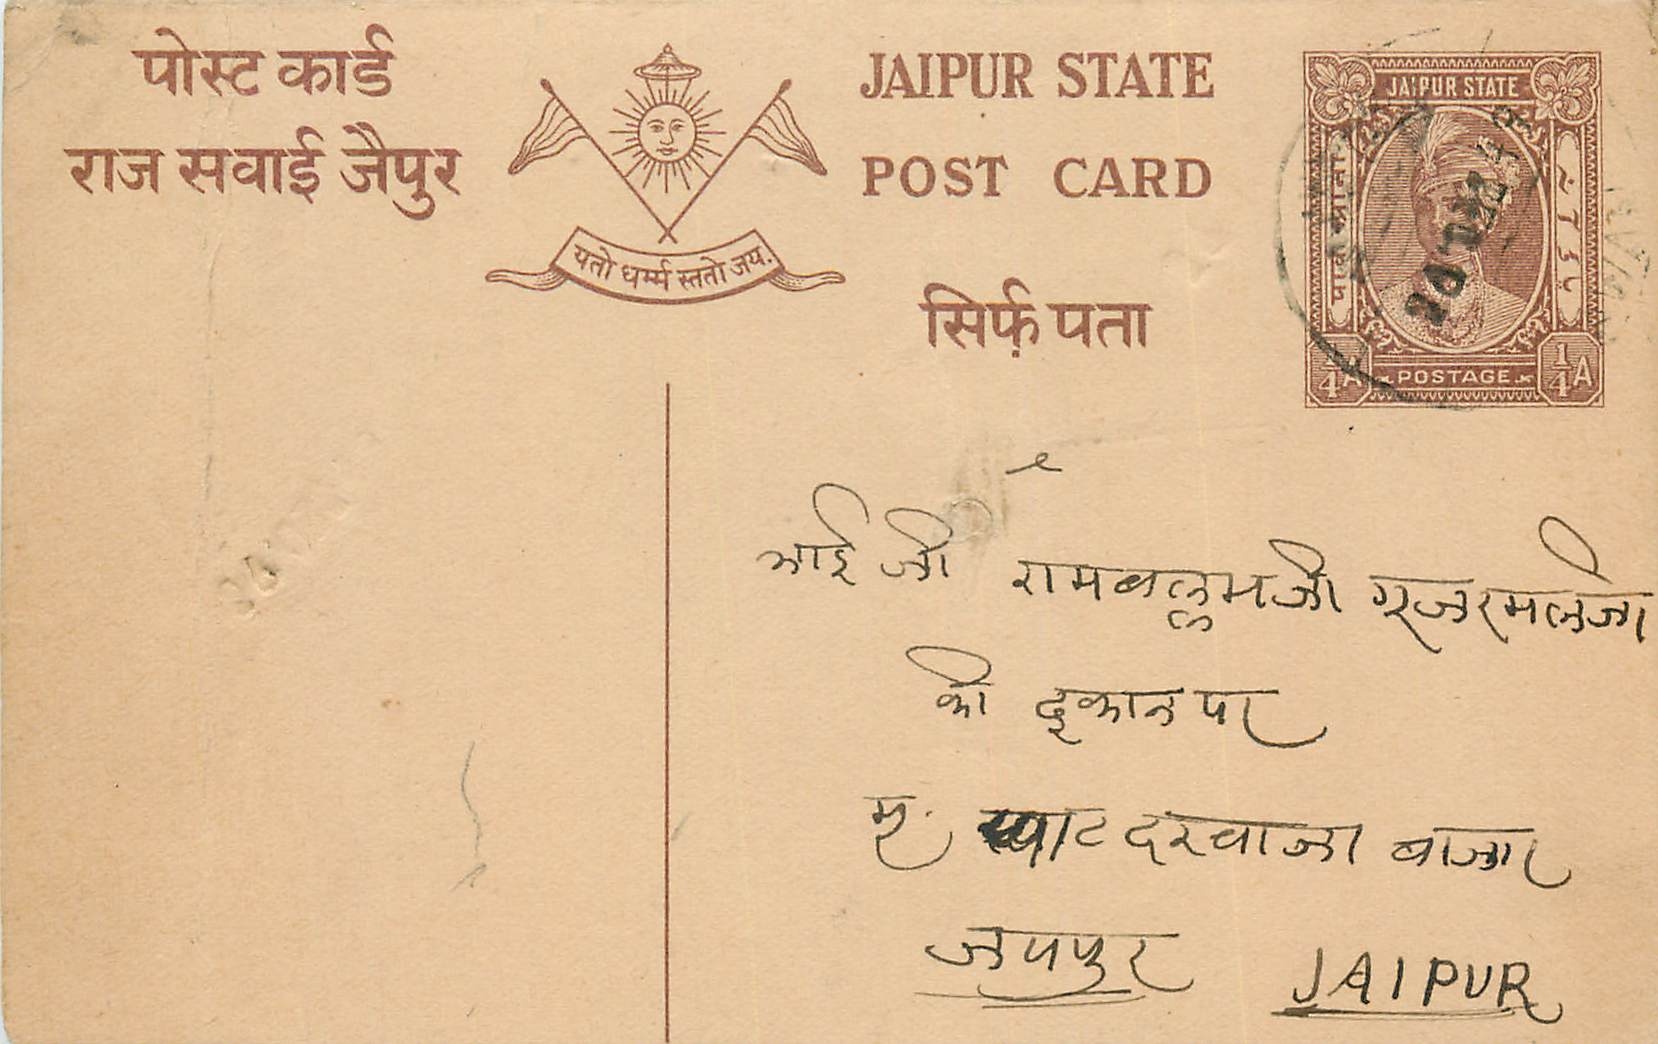 पोस्ट कार्ड
राज सवाई जैपुर
यतो धर्म्म स्ततो जय.
JAIPUR STATE
POST CARD
सिर्फ़ पता
JAIPUR STATE
पाव आना
POSTAGE
1/4 A
1/4 A
भाई जी
की दुकान पर
मु. घाट दरवाजा बाजार
जयपुर JAIPUR